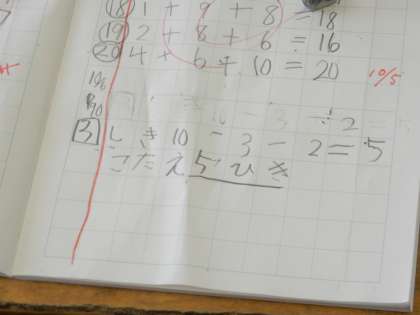 ⑱ 1 + 9 + 8 = 18
⑲ 2 + 8 + 6 = 16
⑳ 4 + 6 + 10 = 20
10/5
3 しき 10 - 3 - 2 = 5
こたえ 5ひき